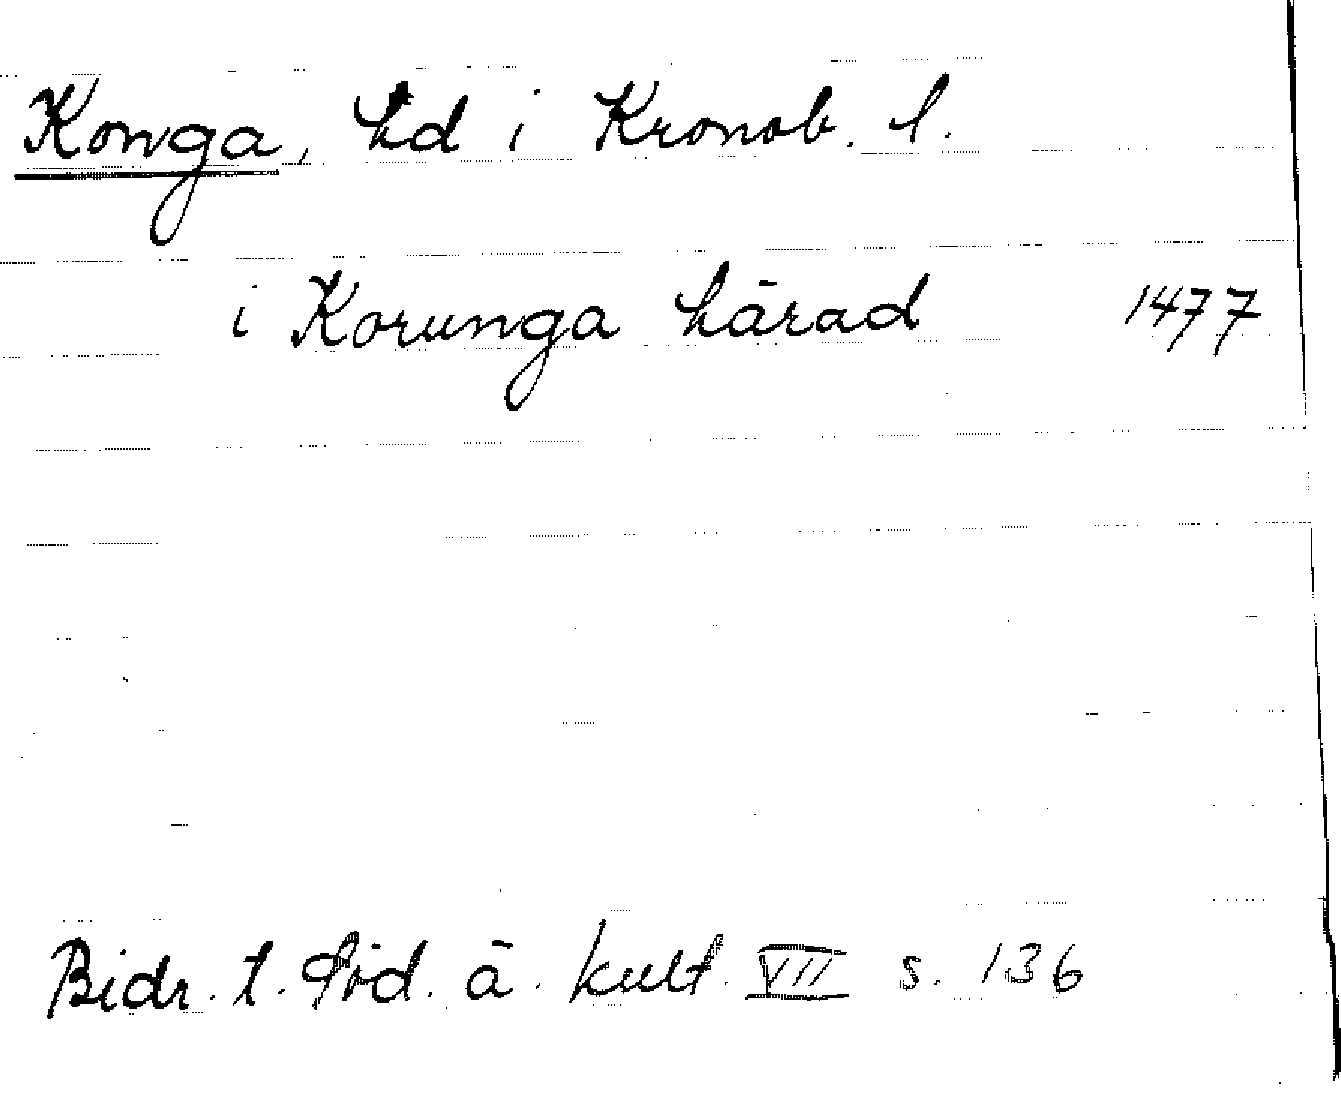 Konga, hd i Kronob. l.
i Korunga härad 1477
Bidr. t. Söd. ä. kult. VII s. 136